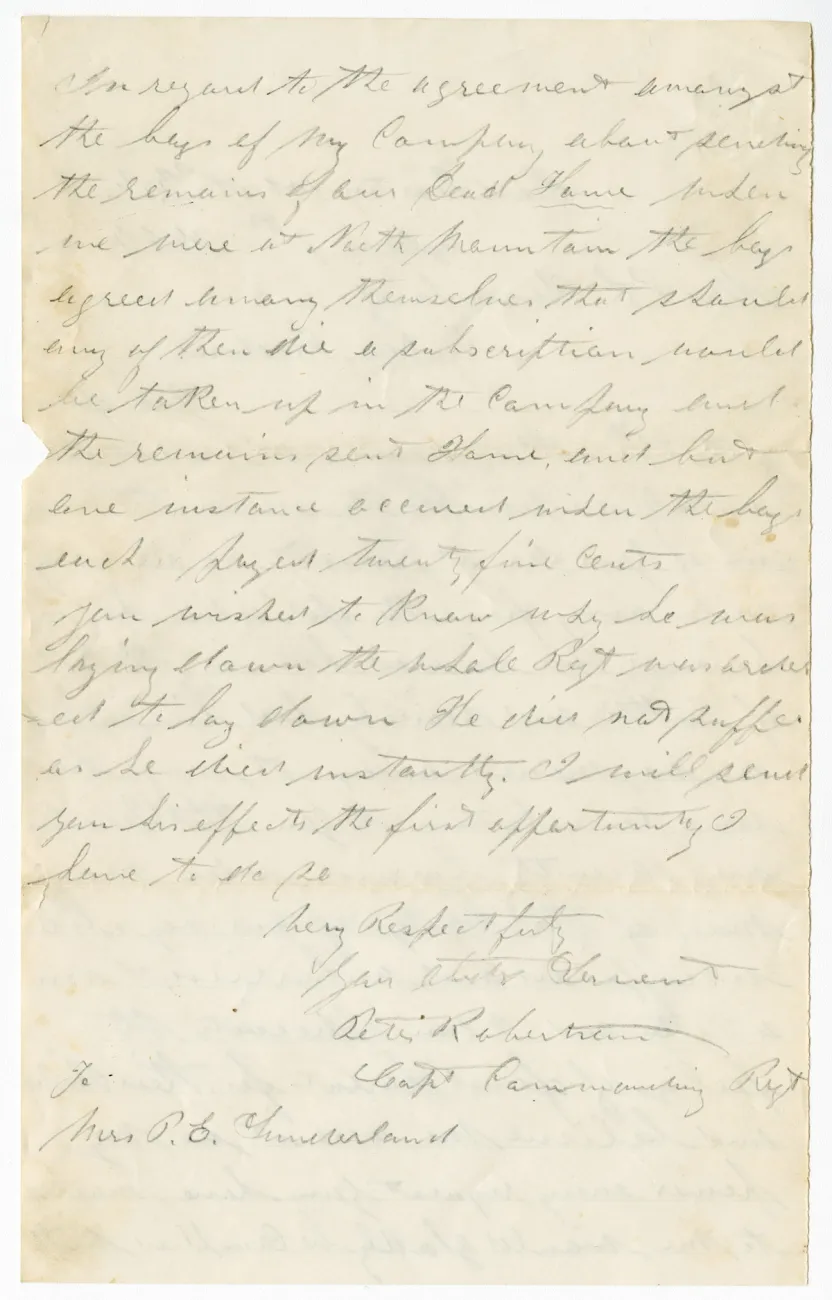 In regard to the agreement amongst
the boys of my Company about sending
the remains of our Dead Home when
we were at North Mountain the boys
agreed among themselves that should
any of then die a subscription would
be taken up in the Company and
the remains sent Home, and but
one instance occured when the boys
each payed twenty five Cents
you wished to Know why he was
laying down the whole Regt was order
ed to lay down He did not suffer
as he died instantly. I will send
you his effects the first oppertunity I
have to do so
Very Respectfuly
Your Servent
Peter Robertson
To Capt Commanding Regt
Mrs P. E. Sunderland